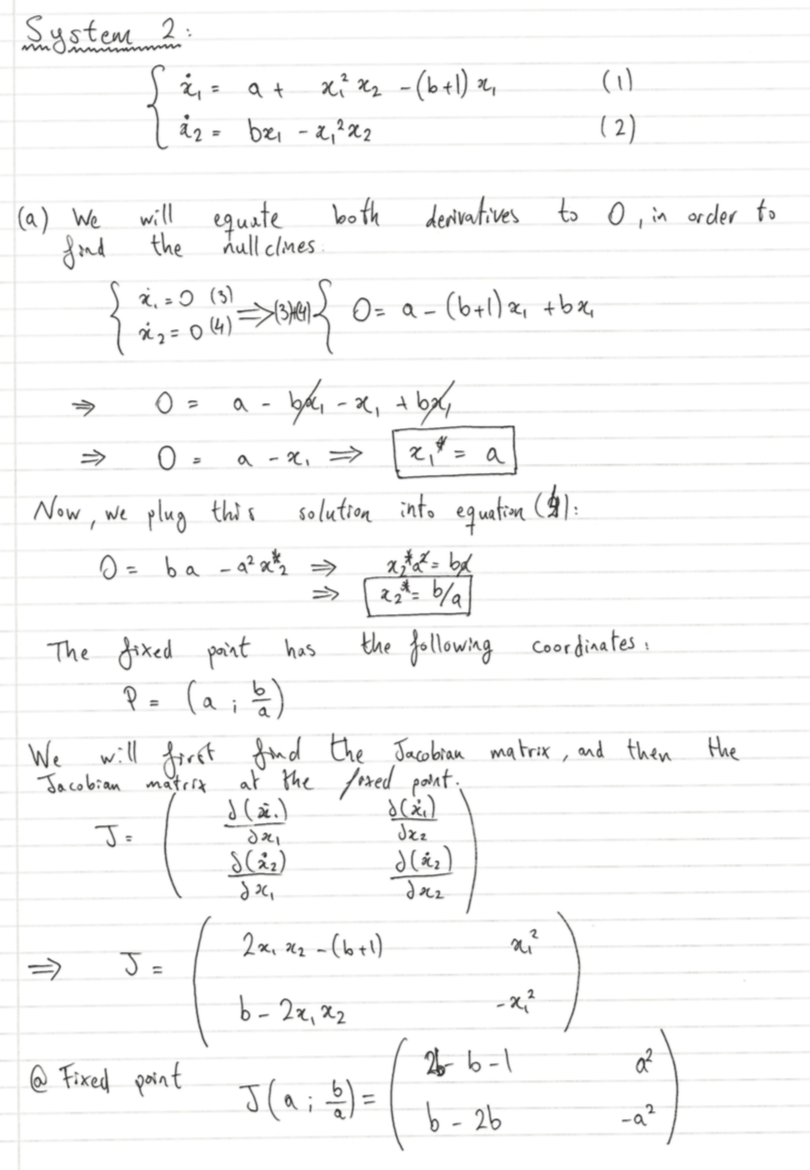 System 2:
ẋ₁ = a + x₁² x₂ - (b+1) x₁ (1)
ẋ₂ = bx₁ - x₁² x₂ (2)
(a) We will equate both derivatives to 0, in order to
find the nullclines.
{ ẋ₁ = 0 (3) ẋ₂ = 0 (4) ⟹ (3)+(4) { 0 = a - (b+1) x₁ + bx₁
⇒ 0 = a - bx₁ - x₁ + bx₁
⇒ 0 = a - x₁ ⟹ x₁* = a
Now, we plug this solution into equation (4):
0 = ba - a² x₂* ⇒ x₂* a² = ba
⇒ x₂* = b/a
The fixed point has the following coordinates:
P = (a ; b/a)
We will first find the Jacobian matrix, and then the
Jacobian matrix at the fixed point.
J = ( ∂(ẋ₁)/∂x₁ ∂(ẋ₁)/∂x₂
∂(ẋ₂)/∂x₁ ∂(ẋ₂)/∂x₂ )
⇒ J = ( 2x₁ x₂ - (b+1) x₁²
b - 2x₁ x₂ -x₁² )
@ Fixed point J(a ; b/a) = ( 2b - b - 1 a²
b - 2b -a² )